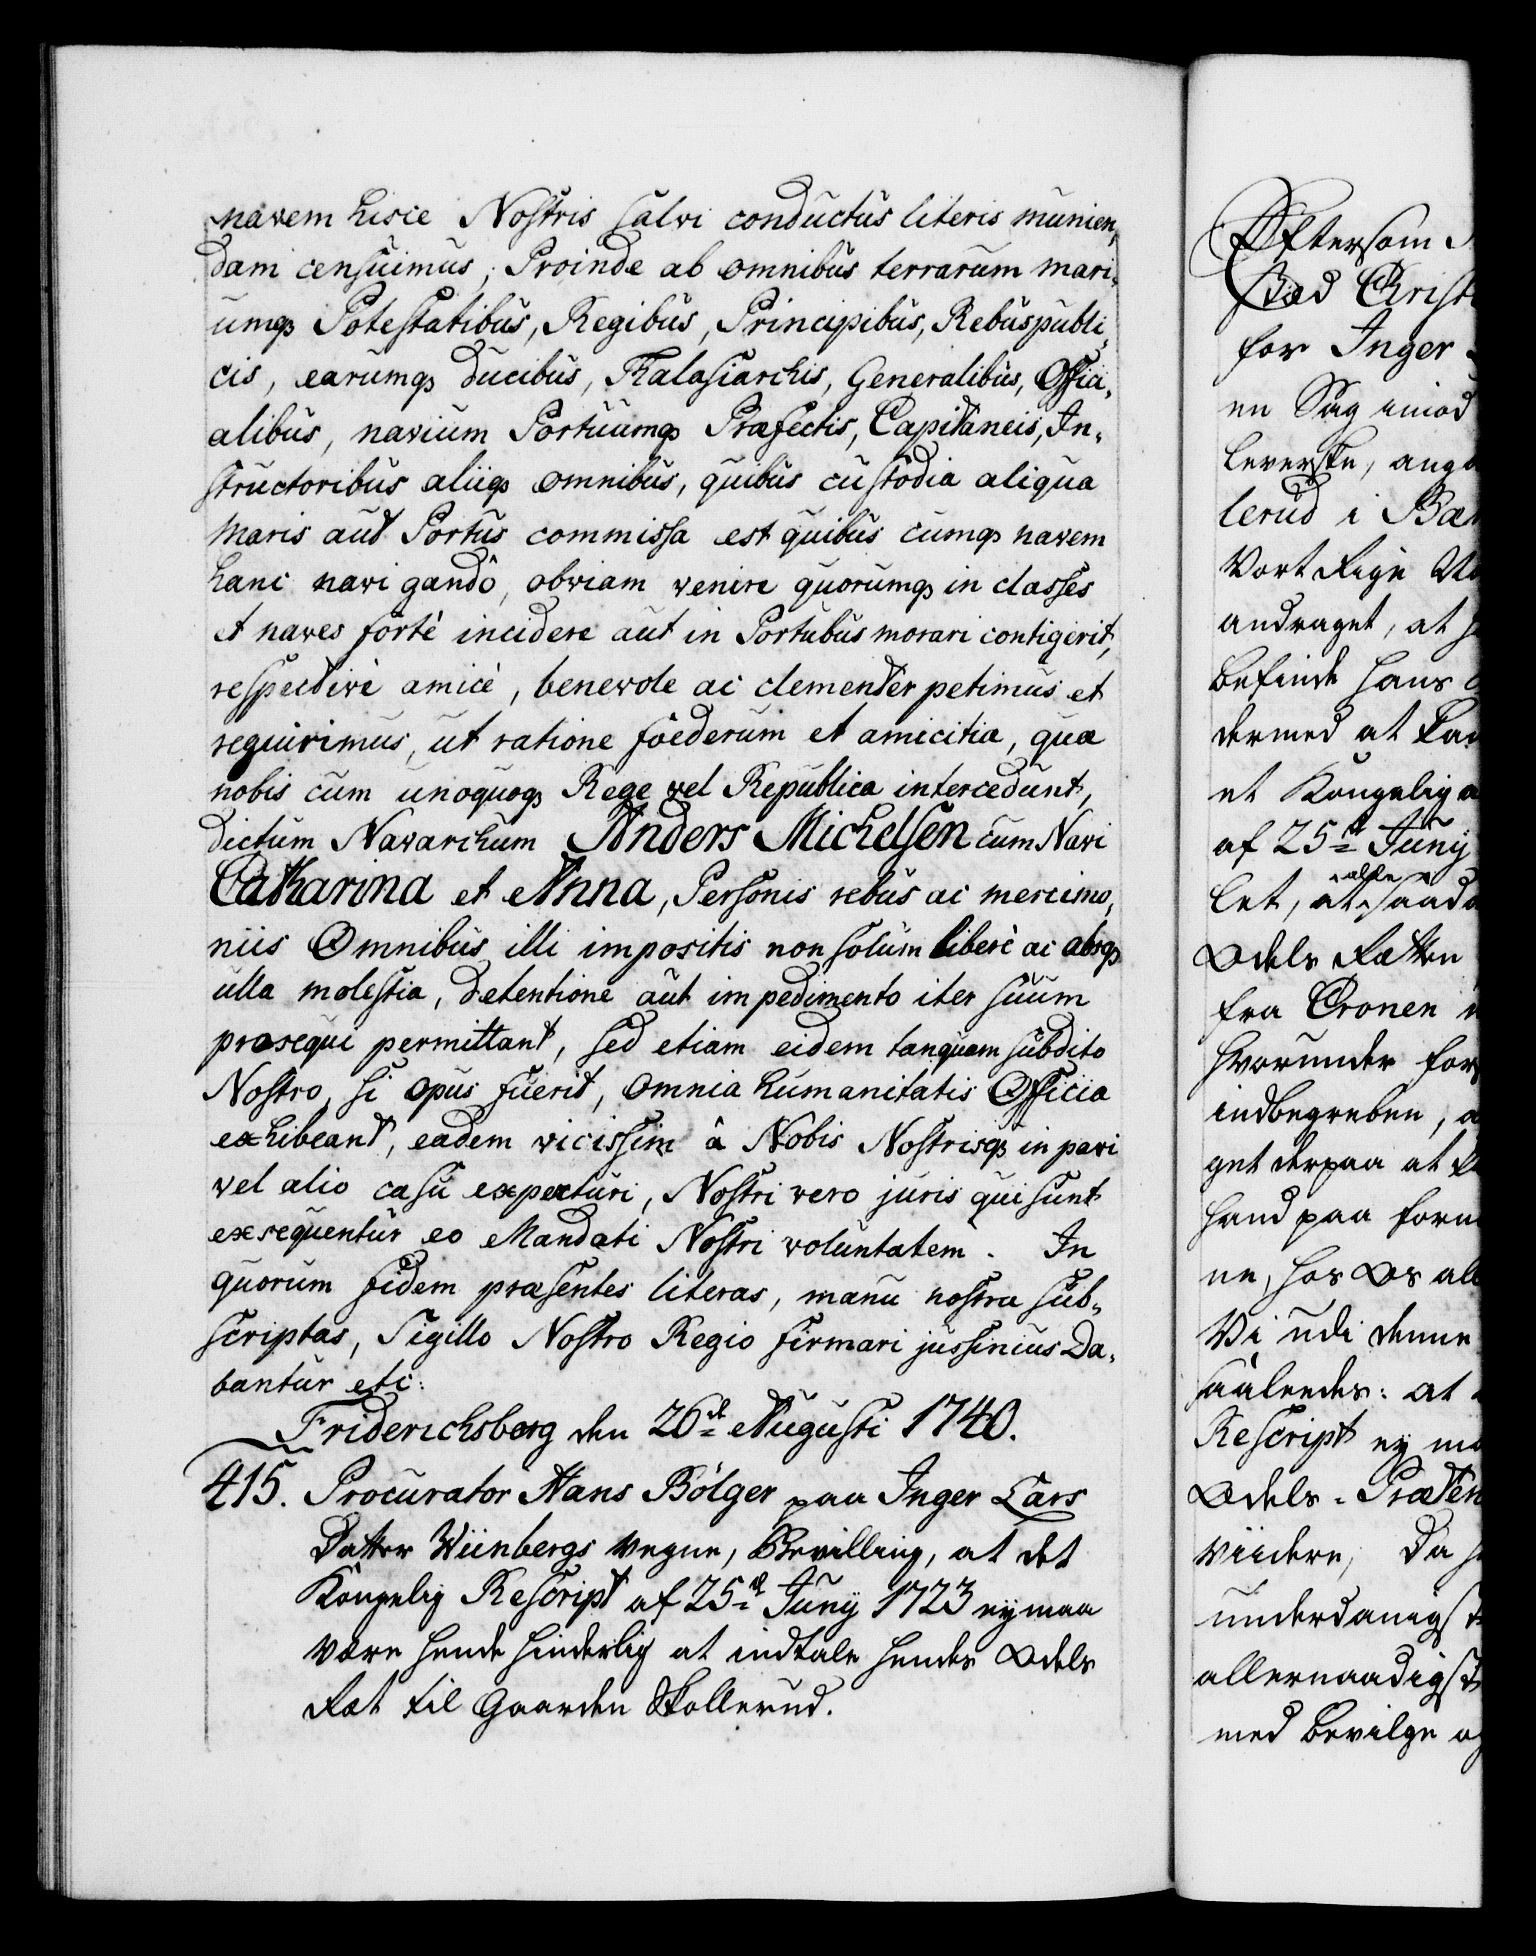 navem hisce Nostris salvi conductus literis munien,
dam censuimus, Proinde ab omnibus terrarum mari,
umqꝫ Potestatibus, Regibus, Principibus, Rebuspubli,
cis, earumqꝫ Ducibus, Thalasiarchis, Generalibus, Offici,
alibus, navium Portuumqꝫ Præfectis, Capitaneis, In,
structoribus aliiqꝫ omnibus, quibus custodia aliqua
maris aut Portus commissa est quibus cumqꝫ navem
hanc navi gandô, obviam venire quorumqꝫ in classes
et naves fortè incidere aut in Portubus morari contigerit,
respectivè amicè, benevole ac clementèr petimus et
requirimus, ut ratione foederum et amicitiæ, quæ
nobis cum unoquoqꝫ Rege vel Republica intercedunt,
dictum Navarchum Anders Michelsen cum Navi
Catharina et Anna, Personis rebus ac mercimo,
niis Omnibus illi impositis non solum liberè ac absqꝫ
ulla molestia, detentione aut impedimento iter suum
prosequi permittant, sed etiam eidem tanquam subdito
Nostro, si opus fuerit, omnia humanitatis Officia
exhibeant, eadem vicissim â Nobis Nostrisqꝫ in pari
vel alio casu experturi, Nostri vero juris qui sunt
exsequentur eo Mandati Nostri voluntatem. In
quorum fidem præsentes literas, manu nostra sub,
scriptas, Sigillo Nostro Regio firmari jussimus Da,
bantur etc:
Friderichsberg den 26de Augusti 1740.
415. Procurator Hans Bölger paa Inger Lars
Datter Wiinbergs Vegne, Bevilling, at det
Kongelig Rescript af 25de Juny 1723 ey maa
være hende hinderlig at indtale hendes Odels
Ræt til Gaarden Skollerud.
Eftersom
Bød Christ
for Inger
en Sag imod
leverske, ang
lerud i Bæ
Vort Rige
andraget, at
befinde hans
dermed at
et Kongelig
af 25de Juny
let, at saad
Odels Rætten
fra Cronen
hvorunder for
indbegreben,
get derpaa at
hand paa form
ne, hos Os al
Vi udi denne
saaledes: at
Rescript ey m
Odels-Præten
viidere, Da
underdanigst
allernaadigst
med bevilge og